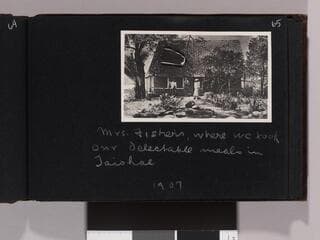 64
65
Mrs. Fishers, where we took
our delectable meals in
1907